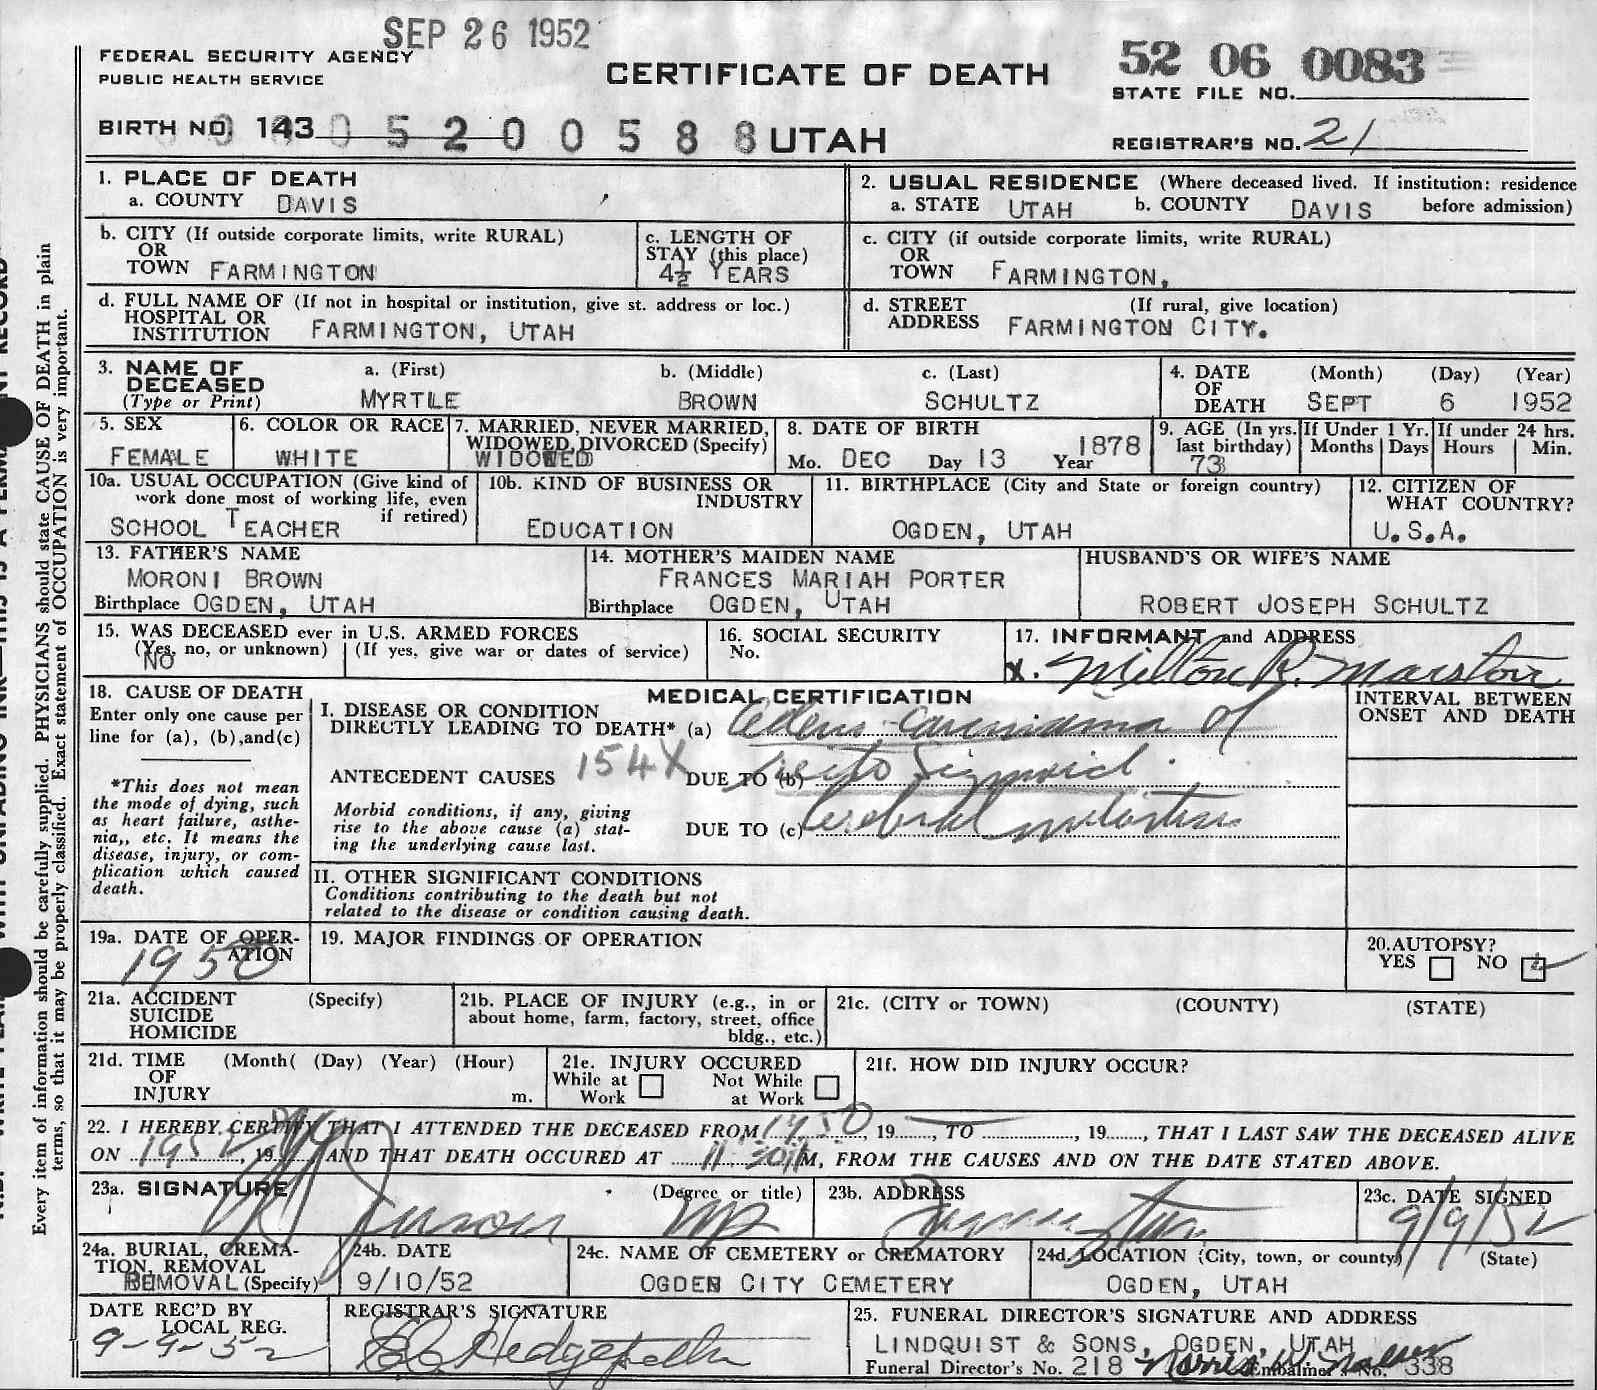 SEP 26 1952
FEDERAL SECURITY AGENCY
PUBLIC HEALTH SERVICE
CERTIFICATE OF DEATH
52 06 0083
STATE FILE NO.
BIRTH NO. 143
05200588
UTAH
REGISTRAR'S NO. 21
1. PLACE OF DEATH
a. COUNTY DAVIS
2. USUAL RESIDENCE (Where deceased lived. If institution: residence before admission)
a. STATE UTAH b. COUNTY DAVIS
b. CITY (If outside corporate limits, write RURAL)
OR
TOWN FARMINGTON
c. LENGTH OF
STAY (this place)
4½ YEARS
c. CITY (if outside corporate limits, write RURAL)
OR
TOWN FARMINGTON,
d. FULL NAME OF (If not in hospital or institution, give st. address or loc.)
HOSPITAL OR
INSTITUTION FARMINGTON, UTAH
d. STREET (If rural, give location)
ADDRESS FARMINGTON CITY.
3. NAME OF DECEASED
(Type or Print)
a. (First) b. (Middle) c. (Last)
MYRTLE BROWN SCHULTZ
4. DATE OF DEATH (Month) (Day) (Year)
SEPT 6 1952
5. SEX
FEMALE
6. COLOR OR RACE
WHITE
7. MARRIED, NEVER MARRIED,
WIDOWED, DIVORCED (Specify)
WIDOWED
8. DATE OF BIRTH
Mo. DEC Day 13 Year 1878
9. AGE (In yrs. last birthday)
73
If Under 1 Yr.
Months Days
If under 24 hrs.
Hours Min.
10a. USUAL OCCUPATION (Give kind of
work done most of working life, even
if retired)
SCHOOL TEACHER
10b. KIND OF BUSINESS OR
INDUSTRY
EDUCATION
11. BIRTHPLACE (City and State or foreign country)
OGDEN, UTAH
12. CITIZEN OF
WHAT COUNTRY?
U.S.A.
13. FATHER'S NAME
MORONI BROWN
Birthplace OGDEN, UTAH
14. MOTHER'S MAIDEN NAME
FRANCES MARIAH PORTER
Birthplace OGDEN, UTAH
HUSBAND'S OR WIFE'S NAME
ROBERT JOSEPH SCHULTZ
15. WAS DECEASED ever in U.S. ARMED FORCES
(Yes, no, or unknown) (If yes, give war or dates of service)
NO
16. SOCIAL SECURITY
No.
17. INFORMANT and ADDRESS
X. Milton R. Marston
18. CAUSE OF DEATH
Enter only one cause per
line for (a), (b), and (c)
*This does not mean
the mode of dying, such
as heart failure, asthe-
nia,, etc. It means the
disease, injury, or com-
plication which caused
death.
MEDICAL CERTIFICATION
I. DISEASE OR CONDITION
DIRECTLY LEADING TO DEATH* (a) Adeno carcinoma of
ANTECEDENT CAUSES 154X DUE TO (b) recto sigmoid.
Morbid conditions, if any, giving
rise to the above cause (a) stat-
ing the underlying cause last.
DUE TO (c) Cerebral metastasis
INTERVAL BETWEEN
ONSET AND DEATH
II. OTHER SIGNIFICANT CONDITIONS
Conditions contributing to the death but not
related to the disease or condition causing death.
19a. DATE OF OPER-
ATION
1950
19. MAJOR FINDINGS OF OPERATION
20. AUTOPSY?
YES NO
21a. ACCIDENT (Specify)
SUICIDE
HOMICIDE
21b. PLACE OF INJURY (e.g., in or
about home, farm, factory, street, office
bldg., etc.)
21c. (CITY or TOWN) (COUNTY) (STATE)
21d. TIME (Month( (Day) (Year) (Hour)
OF
INJURY m.
21e. INJURY OCCURED
While at Work Not While at Work
21f. HOW DID INJURY OCCUR?
22. I HEREBY CERTIFY THAT I ATTENDED THE DECEASED FROM 1950, 19......, TO ............, 19......, THAT I LAST SAW THE DECEASED ALIVE
ON 1952, 19 AND THAT DEATH OCCURED AT 11:30 M, FROM THE CAUSES AND ON THE DATE STATED ABOVE.
23a. SIGNATURE (Degree or title)
MD
23b. ADDRESS
Farmington
23c. DATE SIGNED
9/9/52
24a. BURIAL, CREMA-
TION, REMOVAL
REMOVAL (Specify)
24b. DATE
9/10/52
24c. NAME OF CEMETERY or CREMATORY
OGDEN CITY CEMETERY
24d. LOCATION (City, town, or county) (State)
OGDEN, UTAH
DATE REC'D BY
LOCAL REG.
9-9-52
REGISTRAR'S SIGNATURE
25. FUNERAL DIRECTOR'S SIGNATURE AND ADDRESS
LINDQUIST & SONS, OGDEN, UTAH
Funeral Director's No. 218 Embalmer's No. 338
Every item of information should be carefully supplied. PHYSICIANS should state CAUSE OF DEATH in plain
terms, so that it may be properly classified. Exact statement of OCCUPATION is very important.